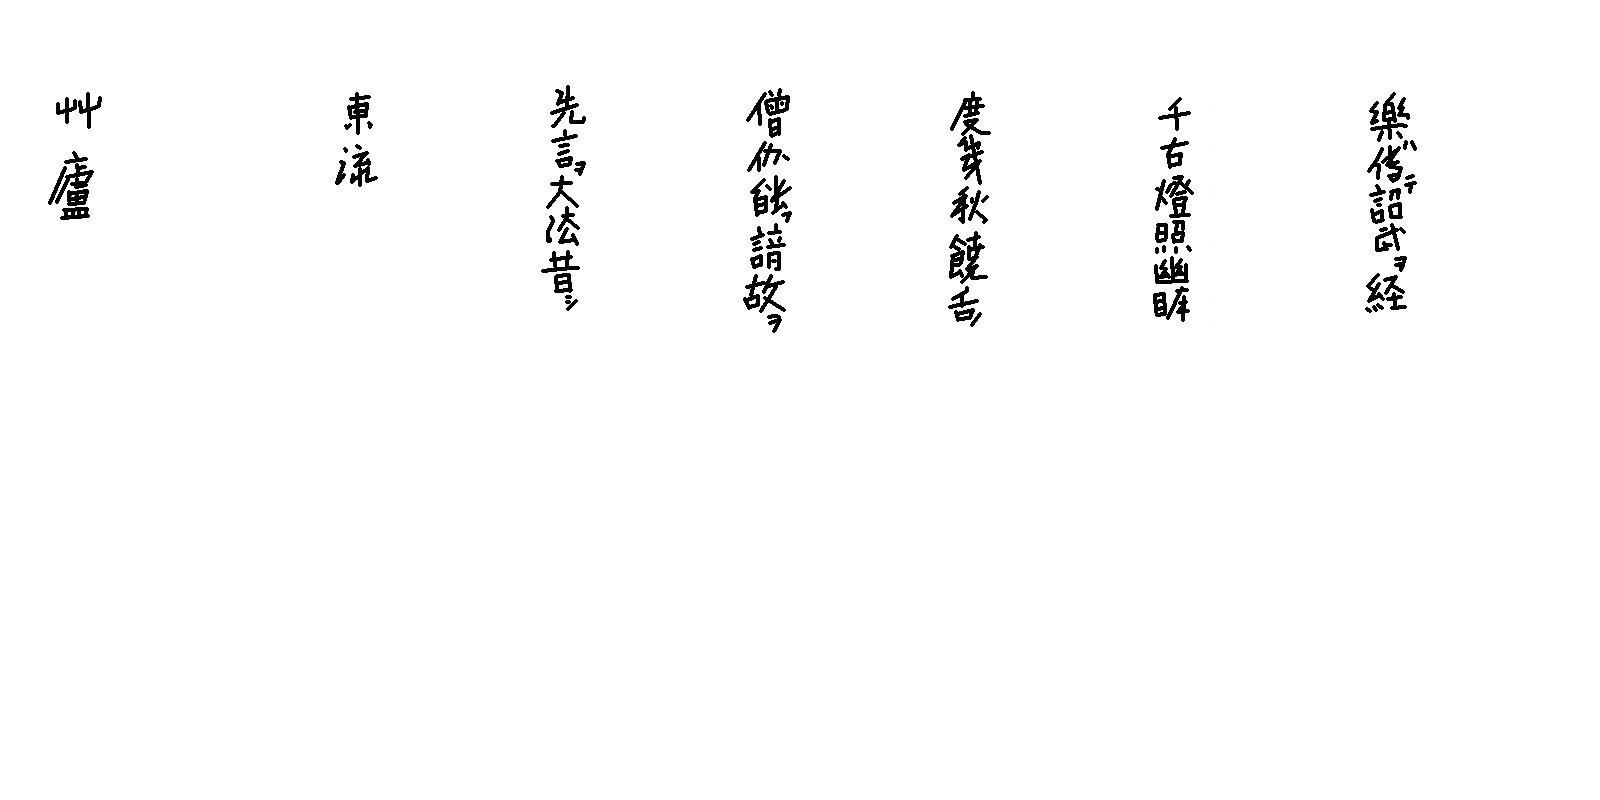 樂バ傳テ詔武ヲ経
千右燈照幽
度幾秋饒舌
僧能諳故ヲ
先言ヲ大法昔シ
東流
艸廬